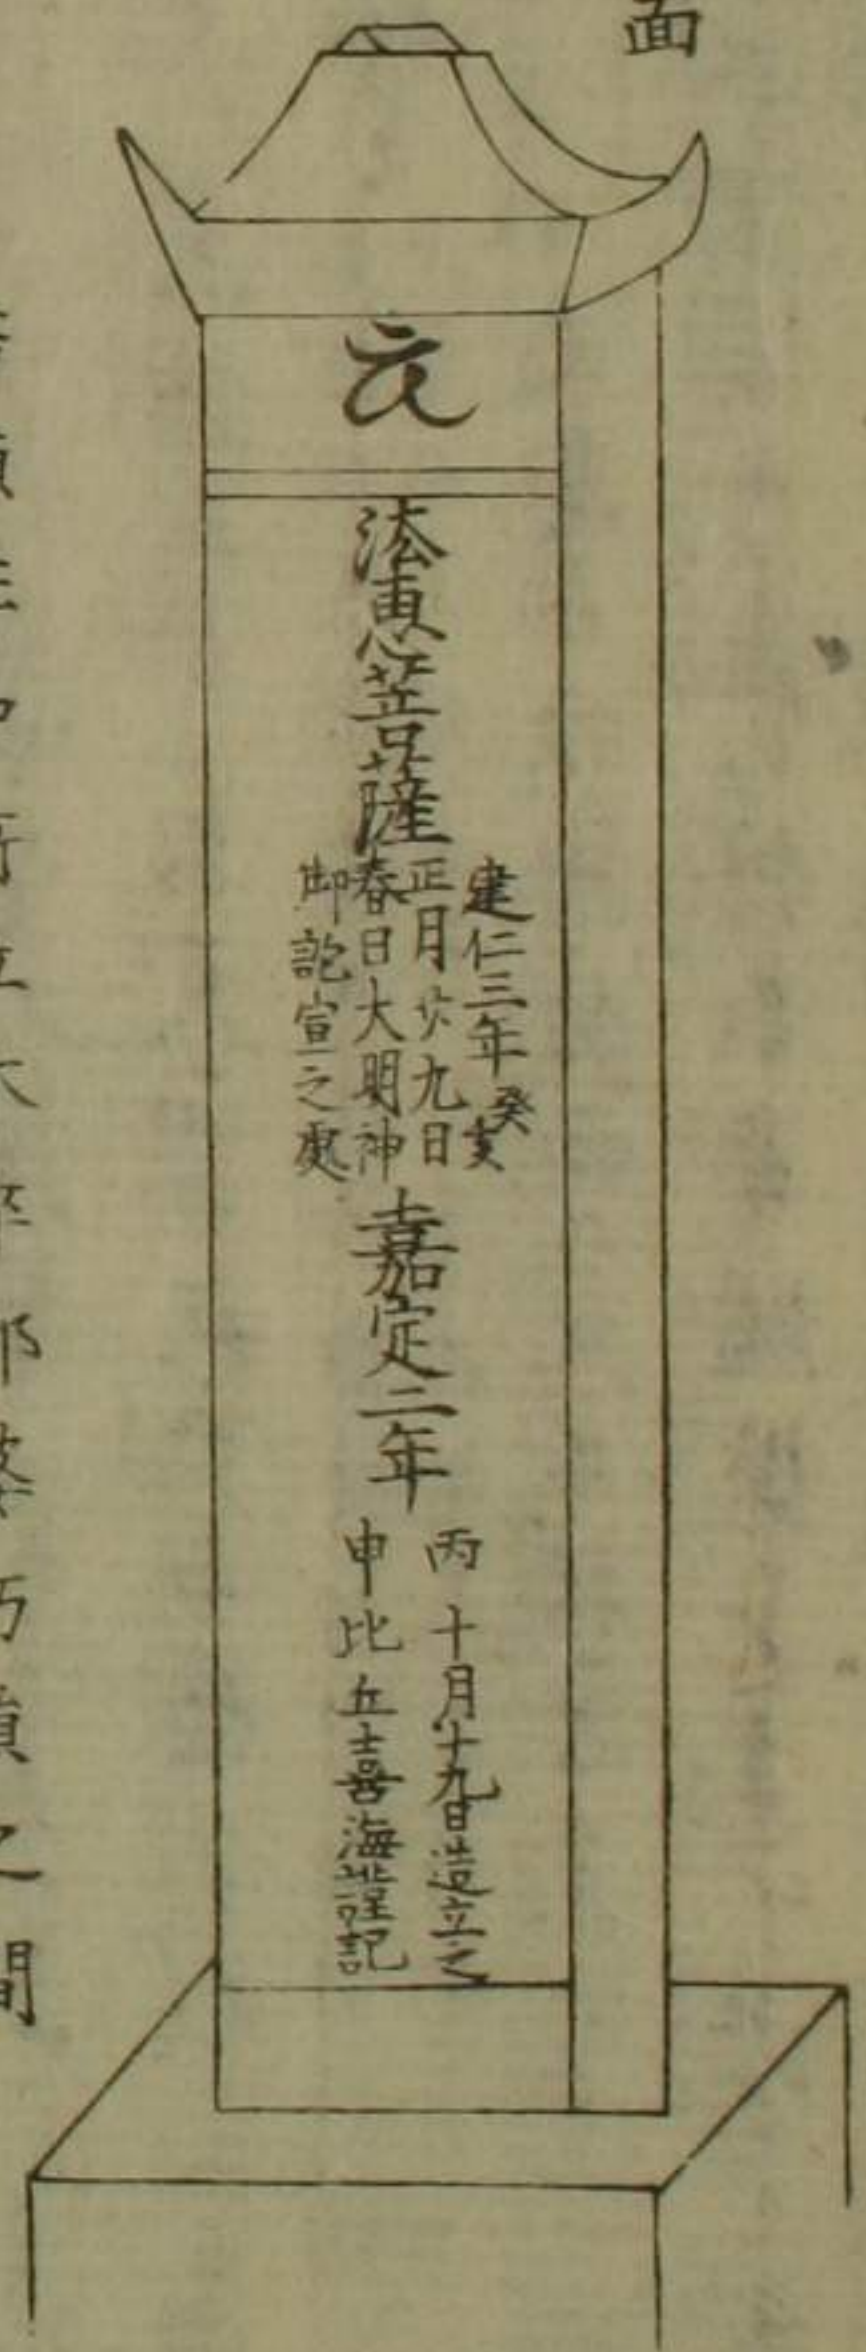 面
法恵菩薩
建仁三年癸亥
正月廿九日
春日大明神
御託宣之處
嘉定二年
丙 十月十九日造立之
申 比丘喜海謹記
之間